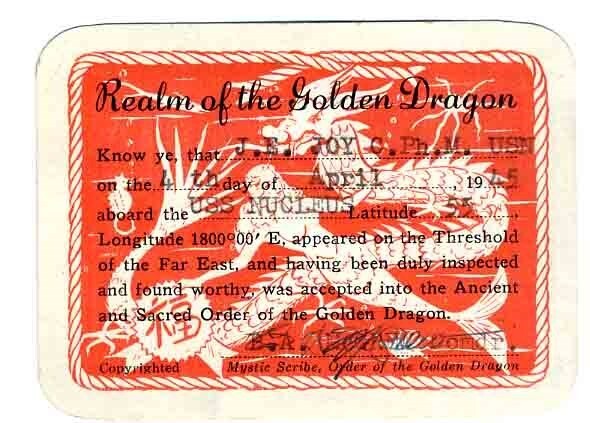 Realm of the Golden Dragon
Know ye, that J.E. JOY C.Ph.M. USN
on the 4 th day of April, 1945
aboard the USS NUCLEUS Latitude 55,
Longitude 1800°00' E, appeared on the Threshold
of the Far East, and having been duly inspected
and found worthy, was accepted into the Ancient
and Sacred Order of the Golden Dragon.
福
E.A.
Copyrighted Mystic Scribe, Order of the Golden Dragon